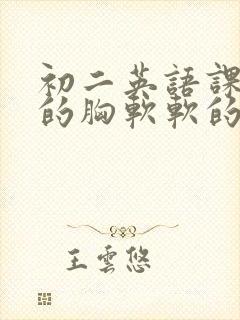 初二英語課
的胸軟軟的
王雲悠